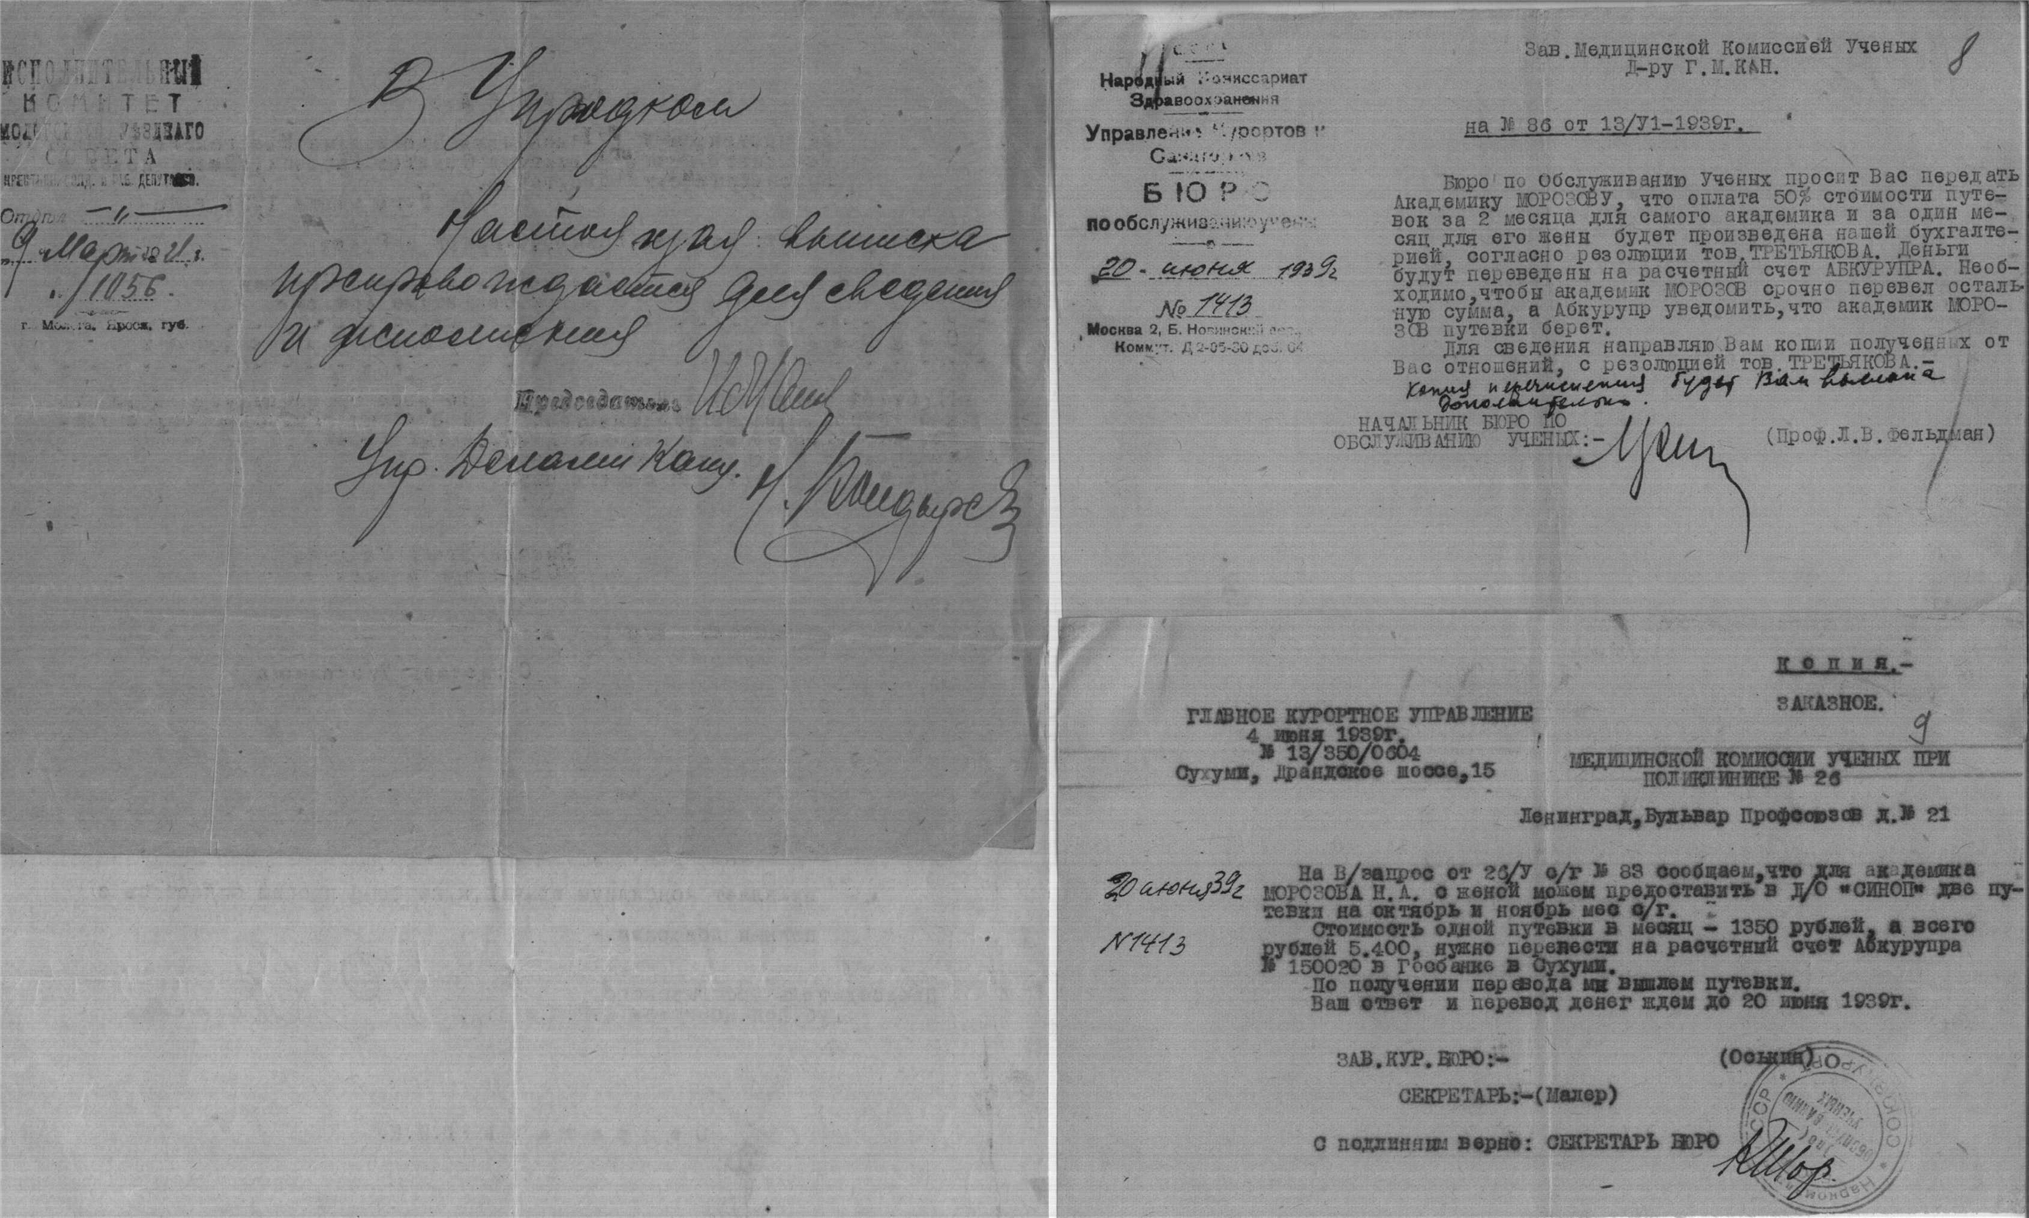 ИСПОЛНИТЕЛЬНЫЙ
КОМИТЕТ
УѢЗДНАГО
СОВЕТА
КРЕСТЬЯН. СОЛД. И РАБ. ДЕПУТАТОВ.
Отдел
9 Март 1921 г.
№ 1056.
г. Молога, Яросл. губ.
В Упродком
Настоящая выписка
препровождается для сведения
и исполнения
Председатель
Упр. Делами Канц.
Народный Комиссариат
Здравоохранения
Управление Курортов и
Санаториев
БЮРО
по обслуживанию ученых
20 - июня 1939г
№ 1413
Москва 2, Б. Новинский пер.,
Коммут. Д 2-05-30 доб. 04
8
Зав.Медицинской Комиссией Ученых
Д-ру Г.М.КАН.
на № 86 от 13/У1-1939г.
Бюро по Обслуживанию Ученых просит Вас передать
Академику МОРОЗОВУ, что оплата 50% стоимости путе-
вок за 2 месяца для самого академика и за один ме-
сяц для его жены будет произведена нашей бухгалте-
рией, согласно резолюции тов.ТРЕТЬЯКОВА. Деньги
будут переведены на расчетный счет АБКУРУПРА. Необ-
ходимо,чтобы академик МОРОЗОВ срочно перевел осталь-
ную сумма, а Абкурупр уведомить,что академик МОРО-
ЗОВ путевки берет.
Для сведения направляю Вам копии полученных от
Вас отношений, с резолюцией тов.ТРЕТЬЯКОВА.-
Копия перечисления будет Вам выслана
дополнительно.
НАЧАЛЬНИК БЮРО ПО
ОБСЛУЖИВАНИЮ УЧЕНЫХ:-
(Проф.Л.В.Фельдман)
Копия.-
ЗАКАЗНОЕ.
9
ГЛАВНОЕ КУРОРТНОЕ УПРАВЛЕНИЕ
4 июня 1939г.
№ 13/350/0604
Сухуми, Драндское шоссе,15
МЕДИЦИНСКОЙ КОМИССИИ УЧЕНЫХ ПРИ
ПОЛИКЛИНИКЕ № 26
Ленинград,Бульвар Профсоюзов д.№ 21
20 июня 39г
N1413
На В/запрос от 26/У с/г № 83 сообщаем,что для академика
МОРОЗОВА Н.А. с женой можем предоставить в Д/О "СИНОП" две пу-
тевки на октябрь и ноябрь мес с/г.
Стоимость одной путевки в месяц - 1350 рублей, а всего
рублей 5.400, нужно перевести на расчетный счет Абкурупра
№ 150020 в Госбанке в Сухуми.
По получении перевода мы вышлем путевки.
Ваш ответ и перевод денег ждем до 20 июня 1939г.
ЗАВ.КУР.БЮРО:-
(Оськин)
СЕКРЕТАРЬ:-(Малер)
С подлинным верно: СЕКРЕТАРЬ БЮРО